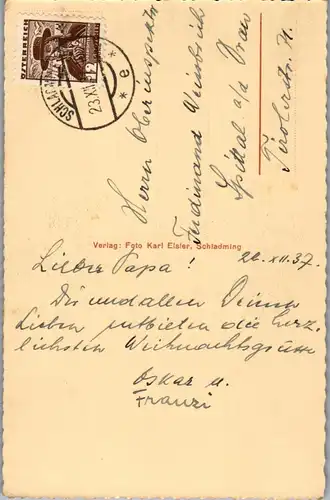 ÖSTERREICH
12
SCHLADMING
23.XII
* e *
Herrn Oberinspektor
Ferdinand
Spittal a/d Drau
Tirolerstr.
Verlag: Foto Karl Eisler, Schladming
22.XII.37.
Lieber Papa!
Dir und allen Deinen
Lieben entbieten die herz-
lichsten Weihnachtsgrüsse
Oskar u.
Franzi